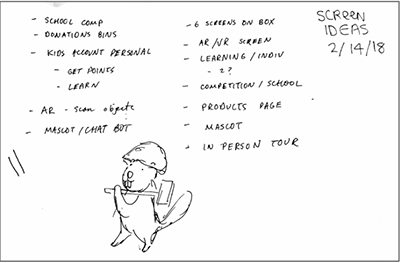 - SCHOOL COMP
- DONATIONS BINS
- KIDS ACCOUNT PERSONAL
- GET POINTS
- LEARN
- AR - Scan objects
- MASCOT / CHAT BOT
- 6 SCREENS ON BOX
- AR / VR SCREEN
- LEARNING / INDIV
- 2?
- COMPETITION / SCHOOL
- PRODUCTS PAGE
- MASCOT
- IN PERSON TOUR
SCREEN
IDEAS
2/14/18